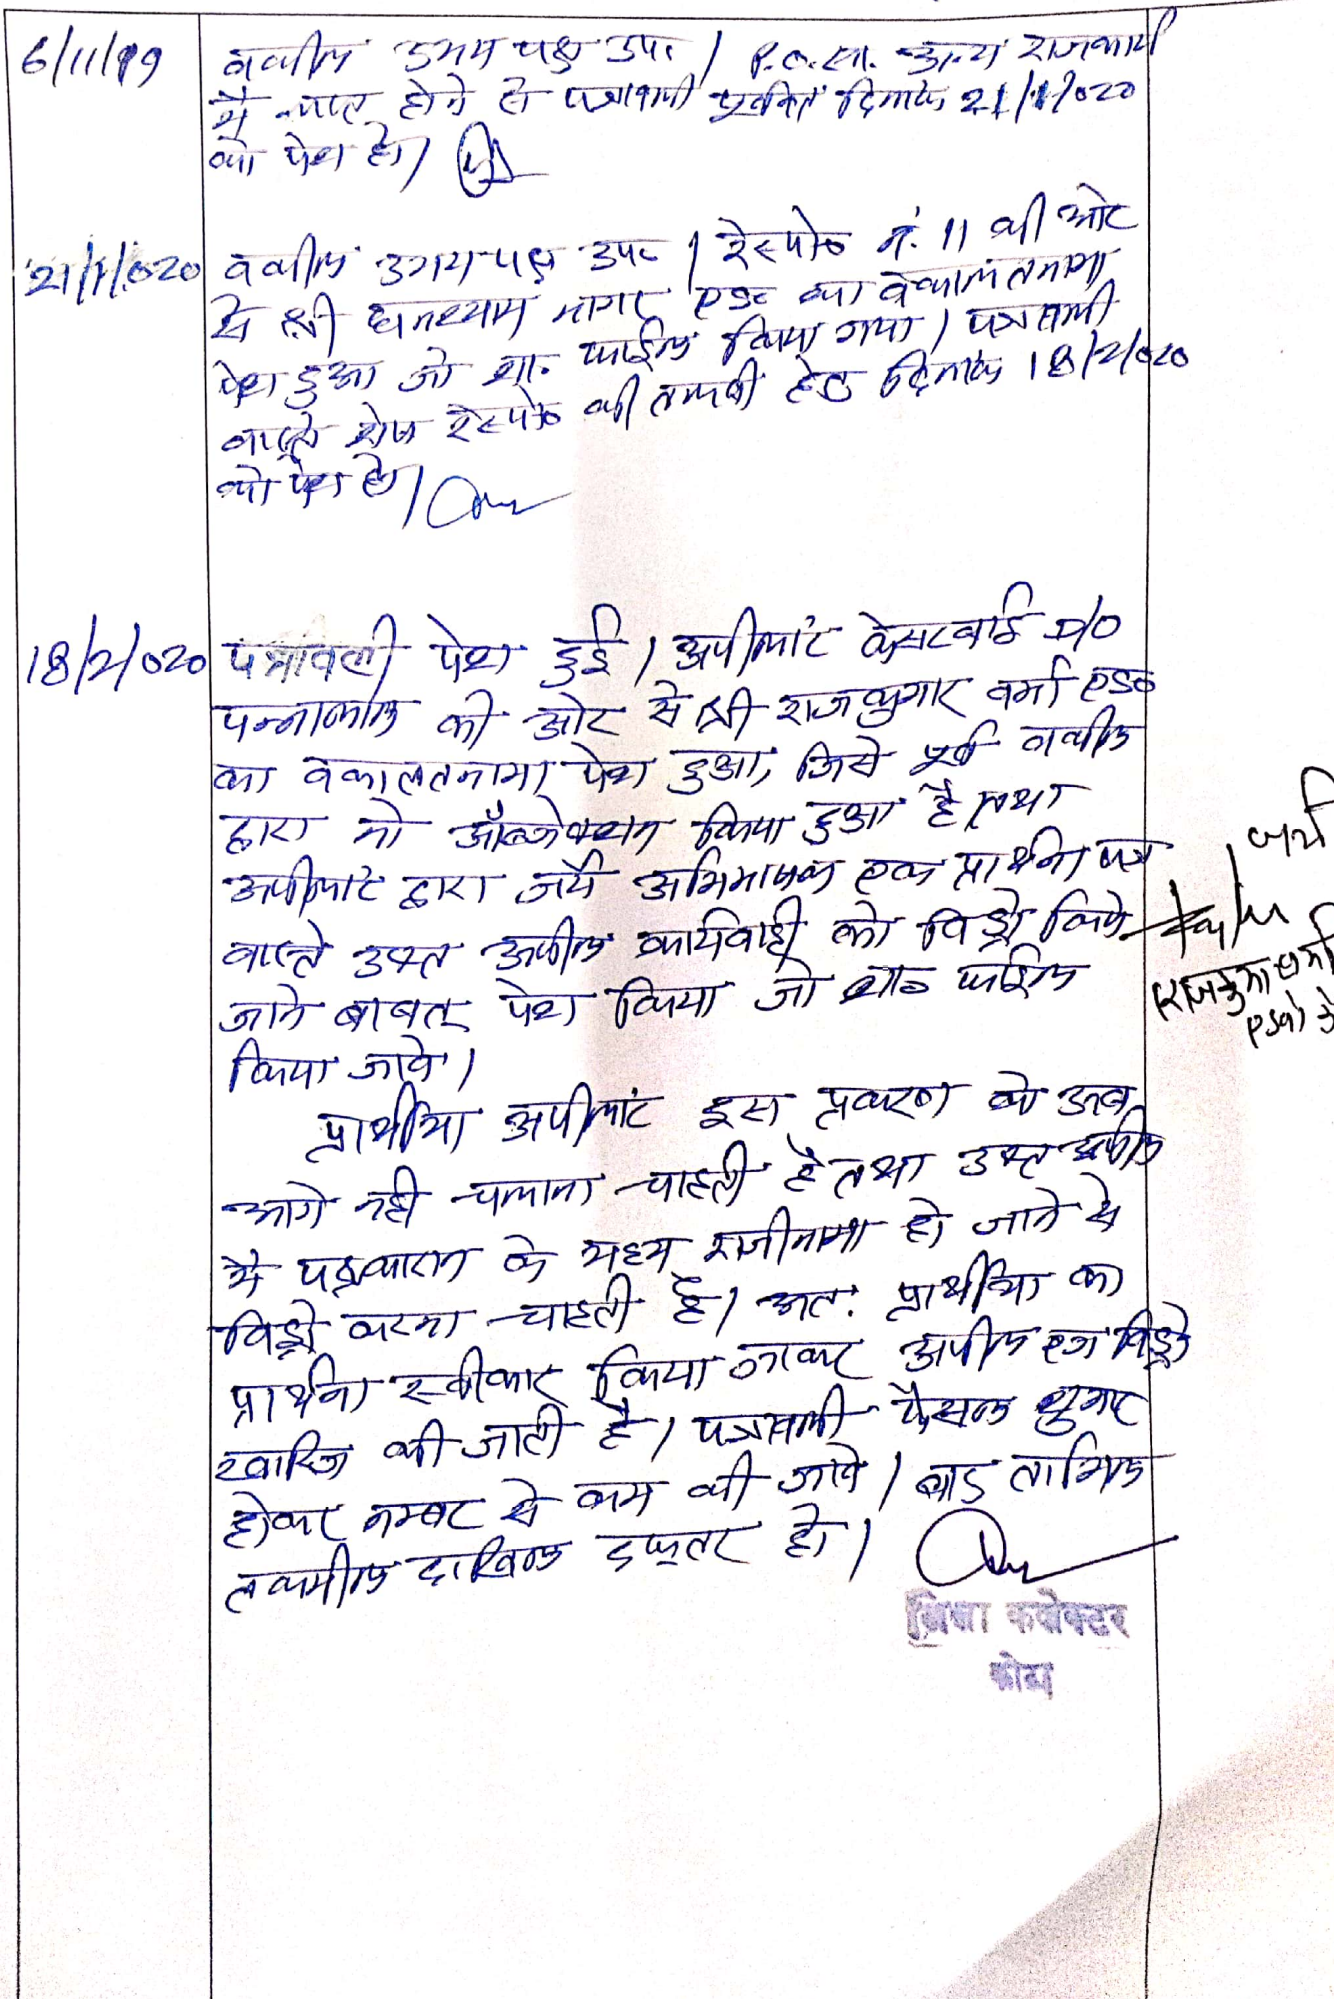 6/11/19
वकील उभय पक्ष उप. / P.O. सा. अन्य राजकार्य
में व्यस्त होने से पत्रावली पूर्ववत दिनांक 21/1/020
को पेश हो /
21/1/020
वकील उभय पक्ष उप. / रेस्पो० नं. 11 की ओर
से श्री घनश्याम नागर एड० का वकालतनामा
पेश हुआ जो शा. फाईल किया गया / पत्रावली
वास्ते शेष रेस्पो० की तलबी हेतु दिनांक 18/2/020
को पेश हो /
18/2/020
पत्रावली पेश हुई / अपीलांट केसरबाई D/O
पन्नालाल की ओर से श्री राजकुमार वर्मा एड०
का वकालतनामा पेश हुआ, जिसे पूर्व वकील
द्वारा नो ऑब्जेक्शन किया हुआ है तथा
अपीलांट द्वारा जर्ये अभिभाषक एक प्रार्थना पत्र
वास्ते उक्त अपील कार्यवाही को विड्रो किये
जाने बाबत् पेश किया जो शा० फाईल
किया जावे /
प्रार्थीया अपीलांट इस प्रकरण को अब
आगे नही चलाना चाहती है तथा उक्त अपील
में पक्षकारान के मध्य राजीनामा हो जाने से
विड्रो करना चाहती है / अत. प्रार्थीया का
प्रार्थना स्वीकार किया जाकर अपील एज विड्रो
खारिज की जाती है / पत्रावली फैसल शुमार
होकर नम्बर से कम की जावे / बाद तामिल
तकमील दाखिल दफ्तर हो /
जिला कलेक्टर
कोटा
जर्ये
राजकुमार वर्मा